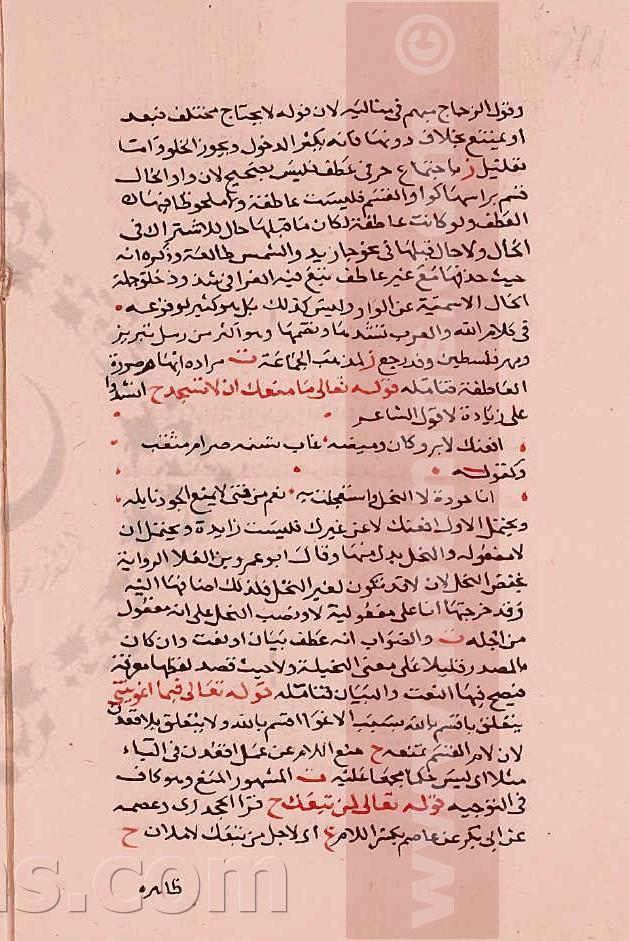 وقول الزجاج مبهم في مثاليه لان قوله لا يحتاج مختلف فبعد
او يمتنع بخلاف دونها فانه يكثر الدخول ويجوز الخلو واما
تعليل ز باجتماع حرفي عطف فليس بصحيح لان واو الحال
قسم براسها كواو القسم فليست عاطفة ملحوظا فيها
العطف ولو كانت عاطفة لكان ما قبلها حال للاشتراك في
الحال ولا حال قبلها في نحو جا زيد والشمس طالعة وذكره انه
حيث حذفها غير عاطف تبع فيه الفرا في شذوذ خلو جملة
الحال الاسمية عن الواو وليس كذلك بل هو كثير لوقوعه
في كلام الله والعرب نثرها ونظمها وهو اكثر من رمل تبرين
ومهر فلسطين وقد رجع ز لمذهب الجماعة ت مراده انها صورة
العاطفة فتامله قوله تعالى ما منعك ان لا تسجد ح انشدوا
على زيادة لا قول الشاعر
افعنك لا برق كان وميضه غاب تسنمه ضرام مثقب
وكقوله
ابا جوده لا البخل واستعجلت به نعم من فتى لا يمنع الجود نايله
ويحتمل الاول افعنك لا عن غيرك فليست زايدة ويحتمل ان
لا مفعوله والبخل بدل منها وقال ابو عمرو بن العلا الرواية
بخفض البخل لان لا قد تكون لغير البخل فلذلك اضافها اليه
وقد خرجتها انا على مفعولية لا ونصب البخل على انه مفعول
من اجله ت والصواب انه عطف بيان او نعت وان كان
بالمصدر قليلا على معنى البخيلة ولا حيث قصد لفظها معرفة
فيصح فيها النعت والبيان فتامله قوله تعالى فبما اغويتني
يتعلق باقسم بالله بسبب الاغوا اقسم بالله ولا يتعلق بلاقعدن
لان لام القسم تمنعه ح منع اللام عن عمل اقعدن في الباء
مثلا اي ليس حكما مجمعا عليه ت المشهور المنع وهو كاف
في التوجيه قوله تعالى لمن تبعك ح قرا الجحدري وعصمه
عن ابي بكر عن عاصم بكسر اللام ع اي لاجل من تبعك لاملان ح
ظاهره